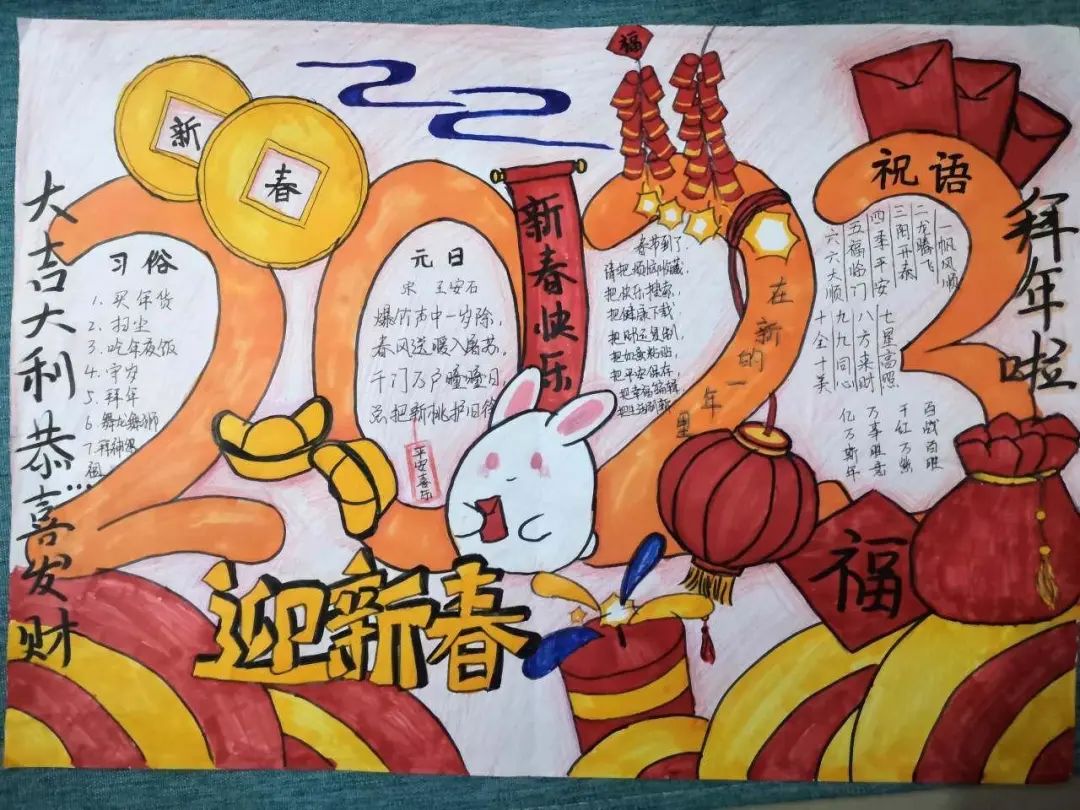 大吉大利恭喜发财
新
春
习俗
1. 买年货
2. 扫尘
3. 吃年夜饭
4. 守岁
5. 拜年
6. 舞龙舞狮
7. 拜神祭
祖...
元日
宋 王安石
爆竹声中一岁除,
春风送暖入屠苏。
千门万户曈曈日
总把新桃护旧符
平安喜乐
新春快乐
福
春节到了,
请把烦恼收藏,
把快乐搜索,
把健康下载,
把财运复制,
把如意粘贴,
把平安保存,
把幸福编辑
把生活刷新
在新的一年里
祝语
一帆风顺
二龙腾飞
三阳开泰
四季平安
五福临门
六六大顺
七星高照
八方来财
九九同心
十全十美
百战百胜
千红万紫
万事胜意
亿万斯年
拜年啦
福
迎新春